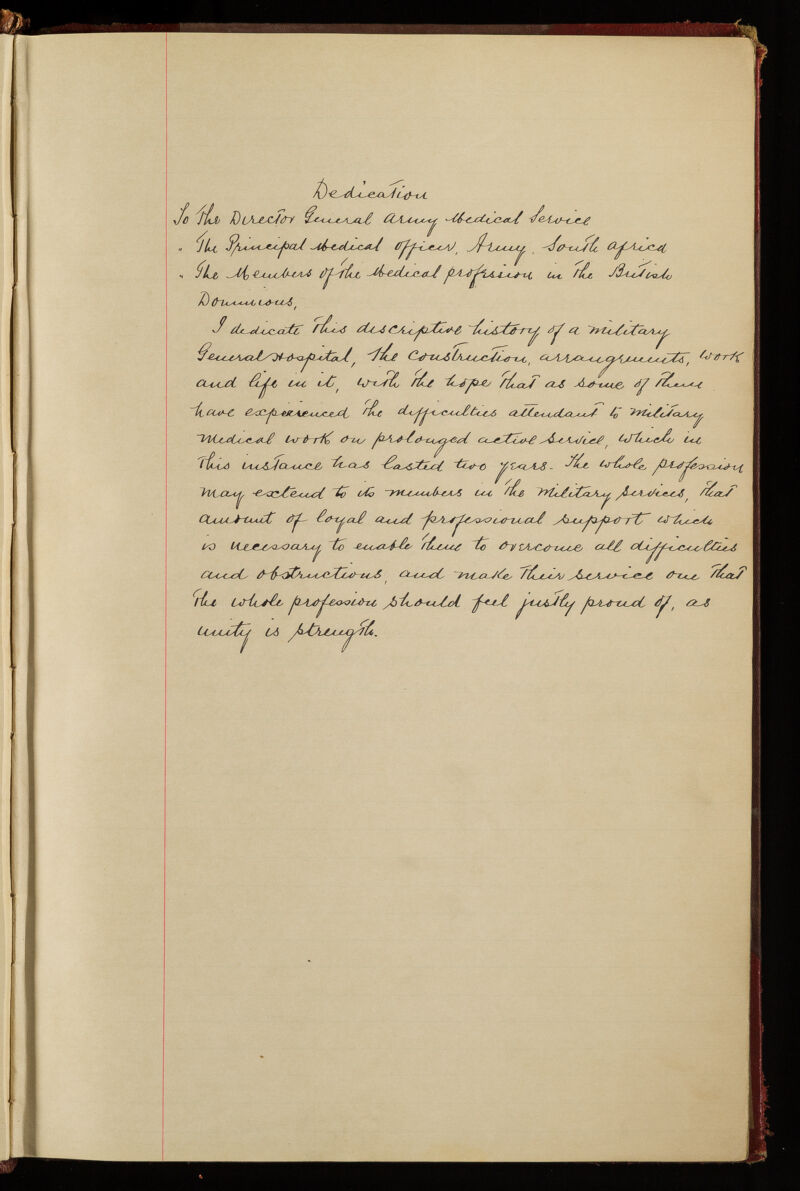 Dedication
To The Director General Army Medical Service
" The Principal Medical officer, Army. South africa
" The Members of the Medical profession in the British
Dominions,
I dedicate this descriptive history of a military
General Hospital, the Construction, arrangements, work
and life in it, with the hope that as some of them
have experienced the difficulties attendant to military
medical work on prolonged active service, which in
this instance has lasted two years. The whole profession
may extend to its members in the military services, that
amount of loyal and professional support which
is necessary to enable them to overcome all difficulties
and obstructions, and make their service one that
the whole profession should feel justly proud of, as
unity is strength.